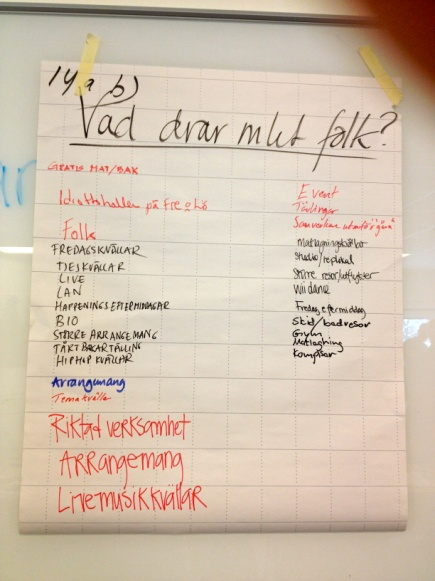 14 a b)
Vad drar mket folk?
GRATIS MAT/BAK
Idrottshallen på Fre o Lö
Folk
FREDAGSKVÄLLAR
TJEJKVÄLLAR
LIVE
LAN
HAPPENINGS EFTERMIDAGAR
BIO
STÖRRE ARRANGEMANG
TÅRTBAKARTÄLING
HIPHOP KVÄLLAR
Arrangemang
Temakvälla
Riktad verksamhet
ARRangemang
Livemusikkvällar
Event
Tävlingar
Samverkan
Matlagningskvällar
studio/replokal
större resor/utflykter
Wii dance
Fredag eftermiddag
Skid/badresor
Gym
Matlagning
Kompisar